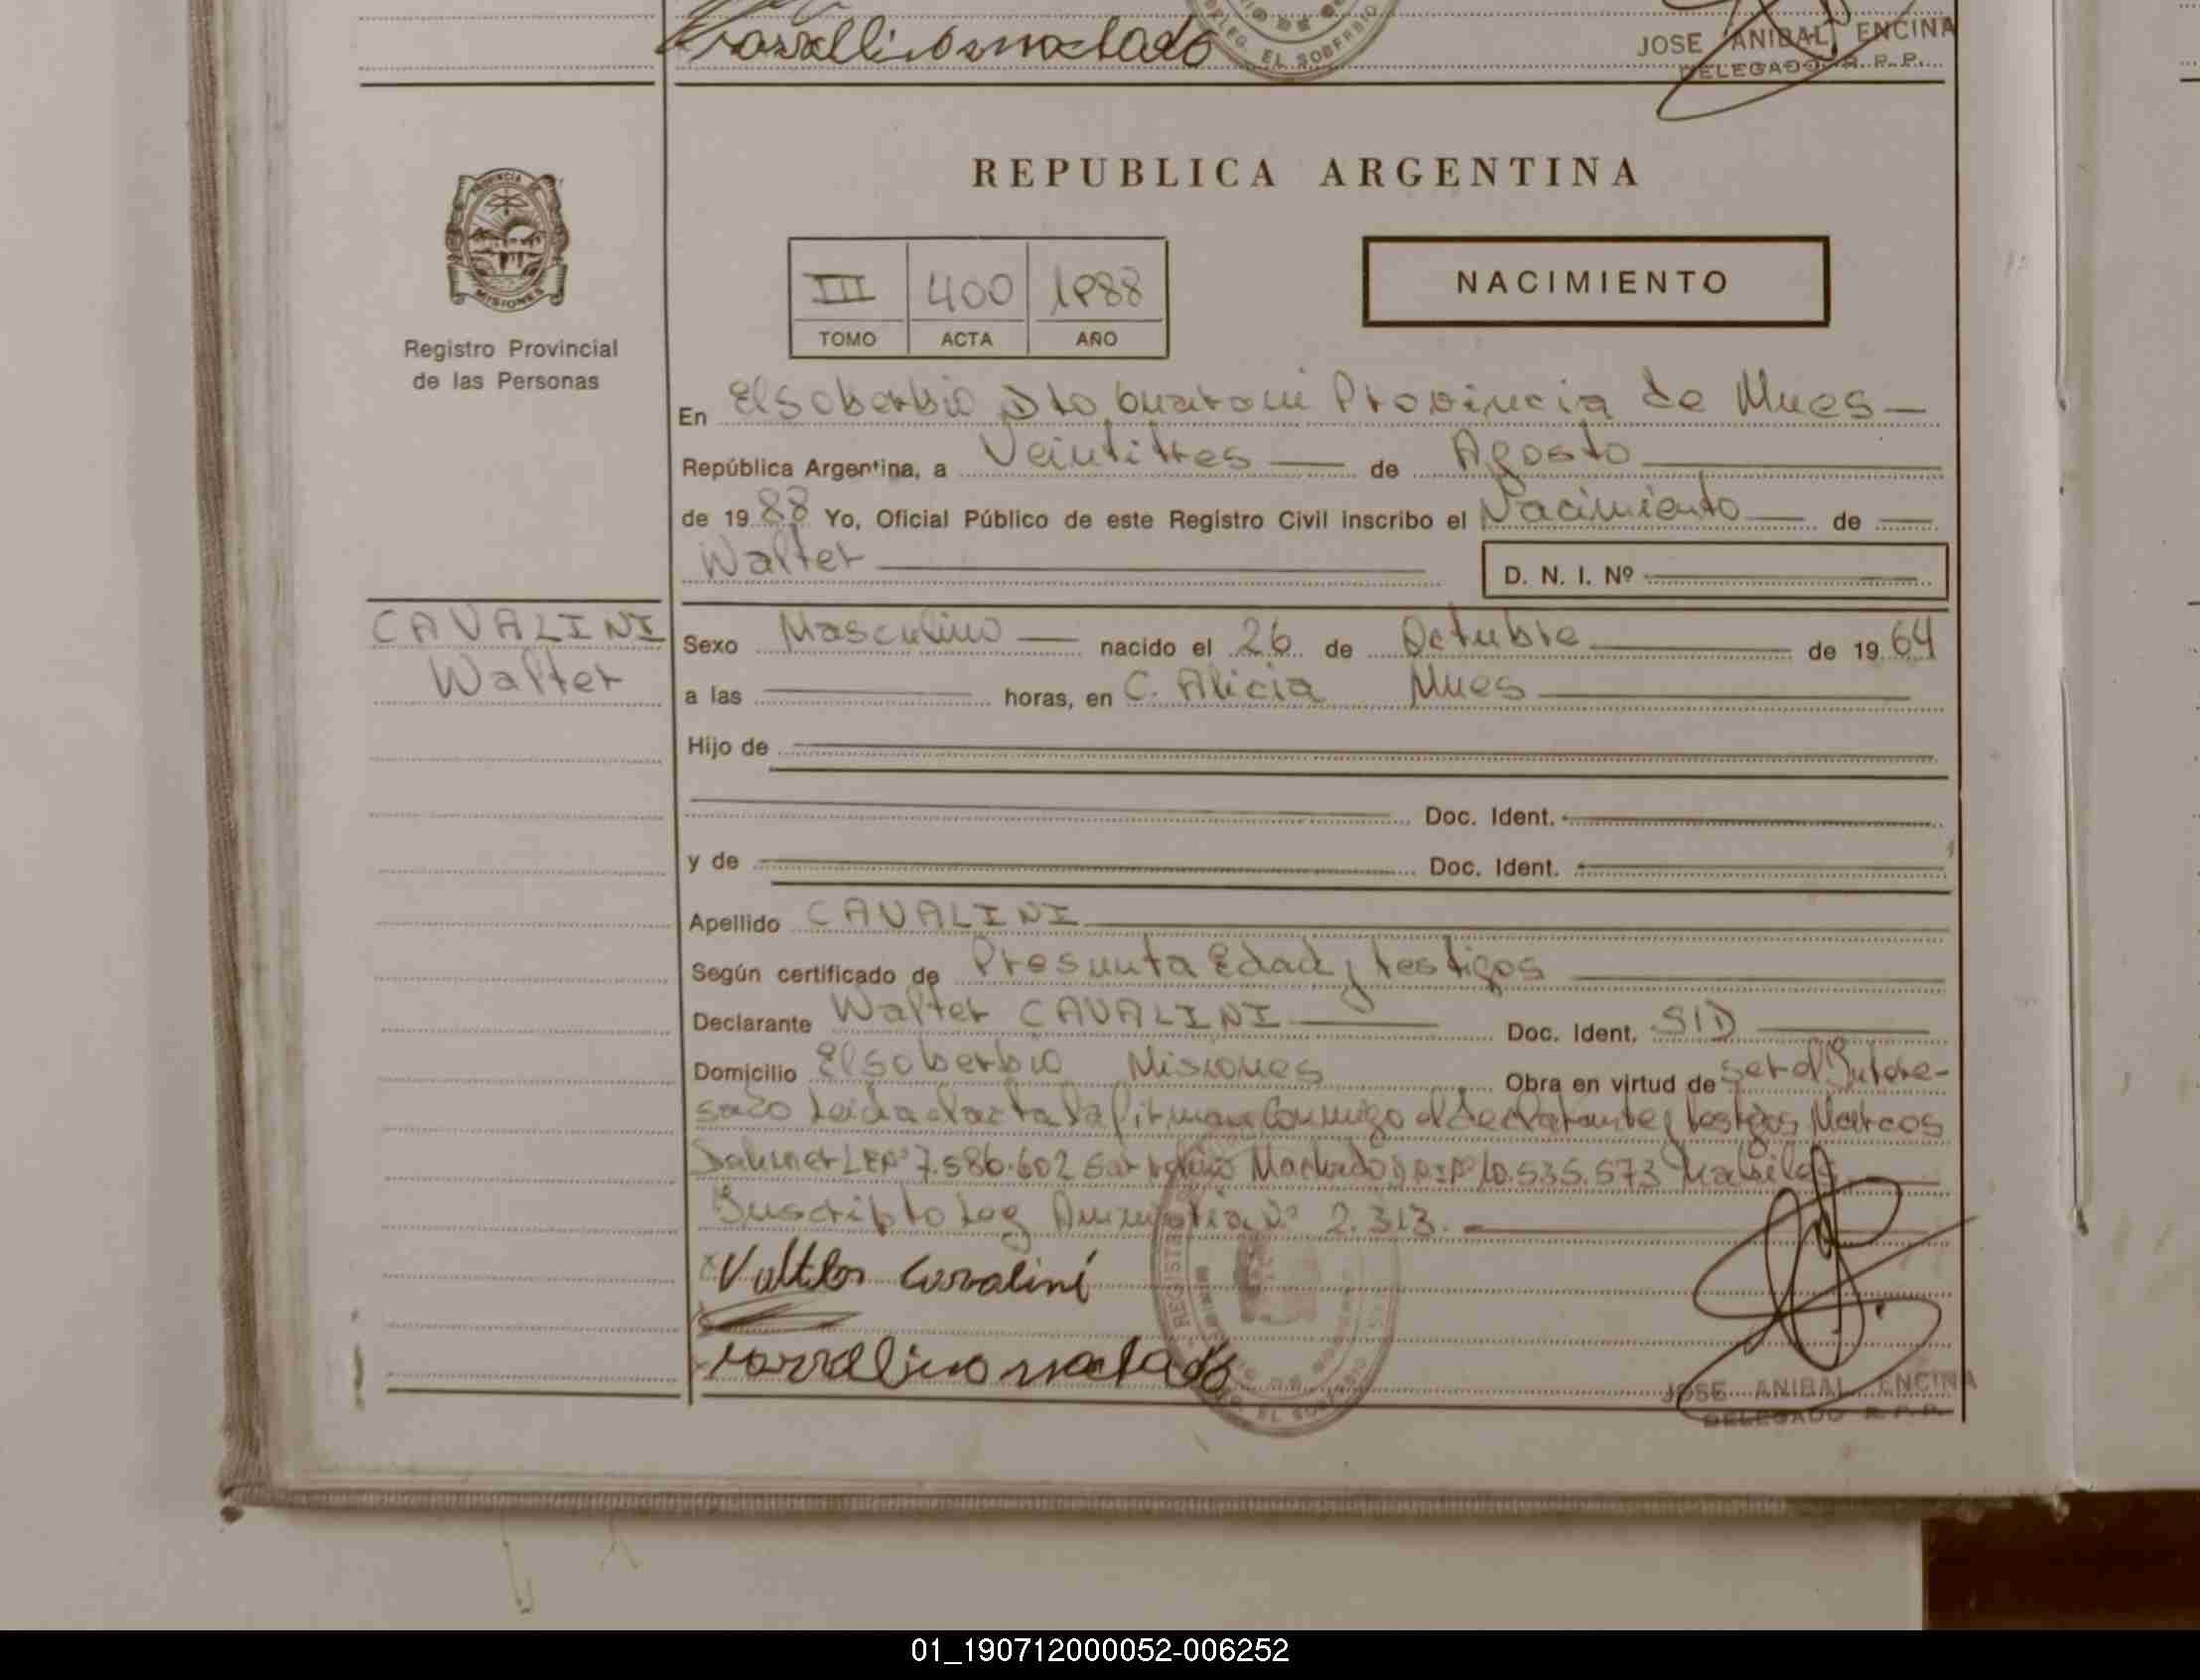 JOSE ANIBAL ENCINA
DELEG. EL SOBERBIO
DELEGADO R. P. P.
PROVINCIA DE
MISIONES
Registro Provincial
de las Personas
REPUBLICA ARGENTINA
III 400 1988
TOMO ACTA AÑO
NACIMIENTO
En El Soberbio Dto Guarani Provincia de Mnes
República Argentina, a Veintitres de Agosto
de 1988 Yo, Oficial Público de este Registro Civil inscribo el Nacimiento de
Walter D. N. I. Nº
CAVALINI
Walter
Sexo Masculino nacido el 26 de Octubre de 1964
a las horas, en C. Alicia Mnes
Hijo de
Doc. Ident.
y de Doc. Ident.
Apellido CAVALINI
Según certificado de Presunta Edad y testigos
Declarante Walter CAVALINI Doc. Ident. S/D
Domicilio El Soberbio Misiones Obra en virtud de ser el Intere-
sado Leida el acta la firman Conmigo el declarante y testigos Marcos
7.586.602 Machado 10.535.573
Suscripto Ley Amnistia Nº 2.313.
Cavalini
JOSE ANIBAL ENCINA
DELEGADO R. P. P.
01_190712000052-006252